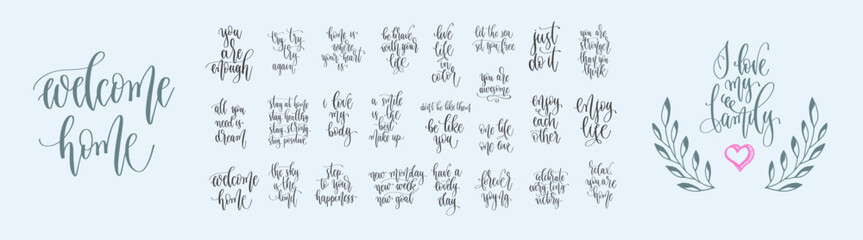 welcome
home
you
are
enough
try try
try
again
home is
where
your heart
is
be brave
with your
life
live
life
in
color
let the sea
set you free
you are
awesome
just
do it
you are
stronger
than you
think
all you
need is
dream
stay at home
stay healthy
stay strong
stay positive
I
love
my
body
a
smile is
the
best
make up
don't be like them
be like
you
one life
one love
enjoy
each
other
enjoy
life
welcome
home
the sky
is the
limit
step
to your
happeness
new monday
new week
new goal
have a
lovely
day
forever
young
celebrate
every tiny
victory
relax
you are
home
I love
my
family